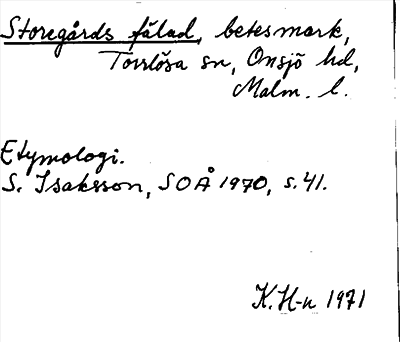 Storegårds fälad, betesmark,
Torrlösa sn, Onsjö hd,
Malm. l.
Etymologi.
S. Isaksson, SOÅ 1970, s. 41.
K. H-n 1971